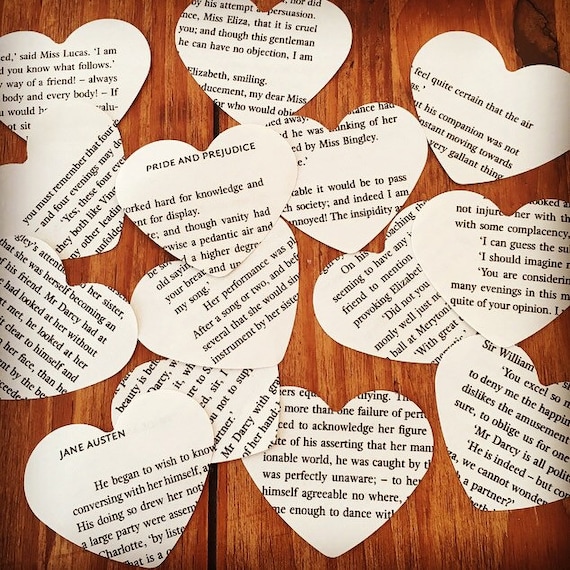 ed,' said Miss Lucas. 'I am
nd you know what follows.'
way of a friend! – always
body and every body! – If
valu-
sit
by his attempt at persuasion.
Miss Eliza, that it is cruel
you; and though this gentleman
he can have no objection, I am
Elizabeth, smiling.
ducement, my dear Miss
for who would obje
feel quite certain that the air
But his companion was not
nstant moving towards
very gallant thing
you must remember that four e
and four evenings may do
'Yes; these four even
they both like Ving
other leading
unfold
PRIDE AND PREJUDICE
orked hard for knowledge and
nt for display.
te; and though vanity had
wise a pedantic air and
d a higher degree
ance had
d he was thinking of her
ed by Miss Bingley.
e.'
rable it would be to pass
h society; and indeed I am
nnoyed! The insipidity an
not injure her with th
with some complacency,
'I can guess the su
'I should imagine n
'You are considering
many evenings in this m
quite of your opinion. I
gley's attent
that she was herself becoming an
of his friend. Mr Darcy had at
had looked at her without
xt met, he looked at her
it clear to himself and
her face, than he
nt by the be
be su
old saying
your breat
my song.'
Her performance was ple
After a song or two, and befo
several that she would sin
instrument by her sister
On his approaching
seeming to have any i
friend to mention
provoking Elizabet
'Did not you
monly well just n
ball at Meryton
'With great
Sir William
'You excel so m
to deny me the happin
dislikes the amusement
sure, to oblige us for one
'Mr Darcy is all polite
'He is indeed – but con
za, we cannot wonder
a partner?'
beauty is be
Mr Darcy,
it, when
was not to supp
artner.'
with gr
of her hand;
JANE AUSTEN
He began to wish to know
conversing with her himself, a
His doing so drew her not
a large party were assem
Charlotte, 'by listen
ers equ
ifying. Th
more than one failure of perf
ced to acknowledge her figure
ite of his asserting that her man
ionable world, he was caught by th
was perfectly unaware; – to her
himself agreeable no where,
me enough to dance with